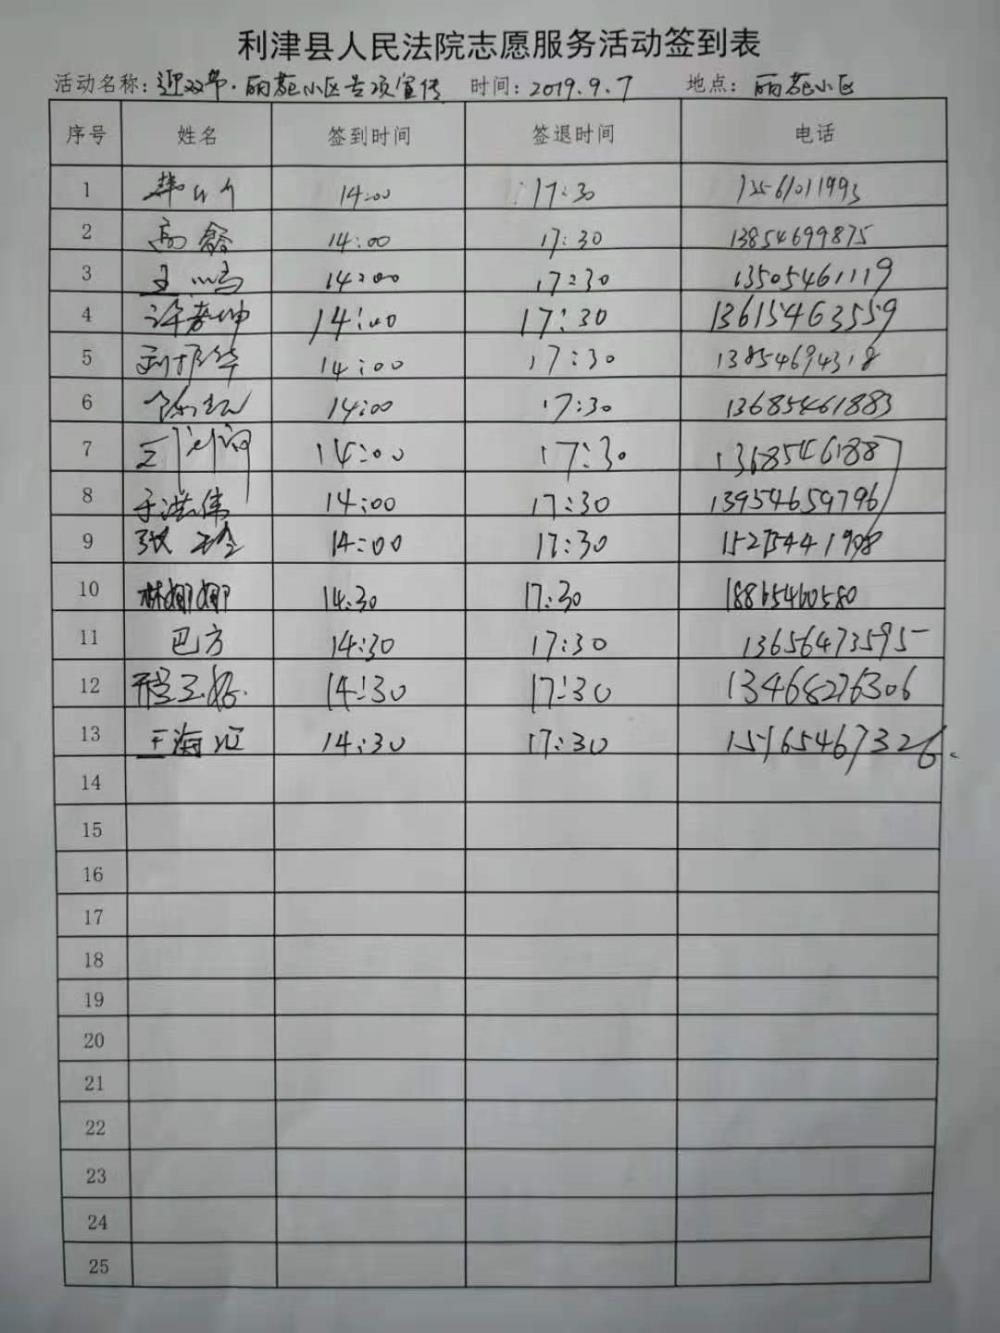 利津县人民法院志愿服务活动签到表
活动名称：迎双节·丽苑小区专项宣传 时间：2019.9.7 地点：丽苑小区
序号 姓名 签到时间 签退时间 电话
1 14:00 17:30
2 高鑫 14:00 17:30 13854699875
3 王鸣 14:00 17:30 13505461119
4 许春坤 14:00 17:30 13615463559
5 刘振华 14:00 17:30 13854694318
6 14:00 17:30 13685461883
7 14:00 17:30
8 于洪伟 14:00 17:30 13954659796
9 张玲 14:00 17:30
10 林娜娜 14:30 17:30 18865460580
11 巴方 14:30 17:30 13656473595
12 14:30 17:30 13468276306
13 王海江 14:30 17:30 15165467326.
14
15
16
17
18
19
20
21
22
23
24
25